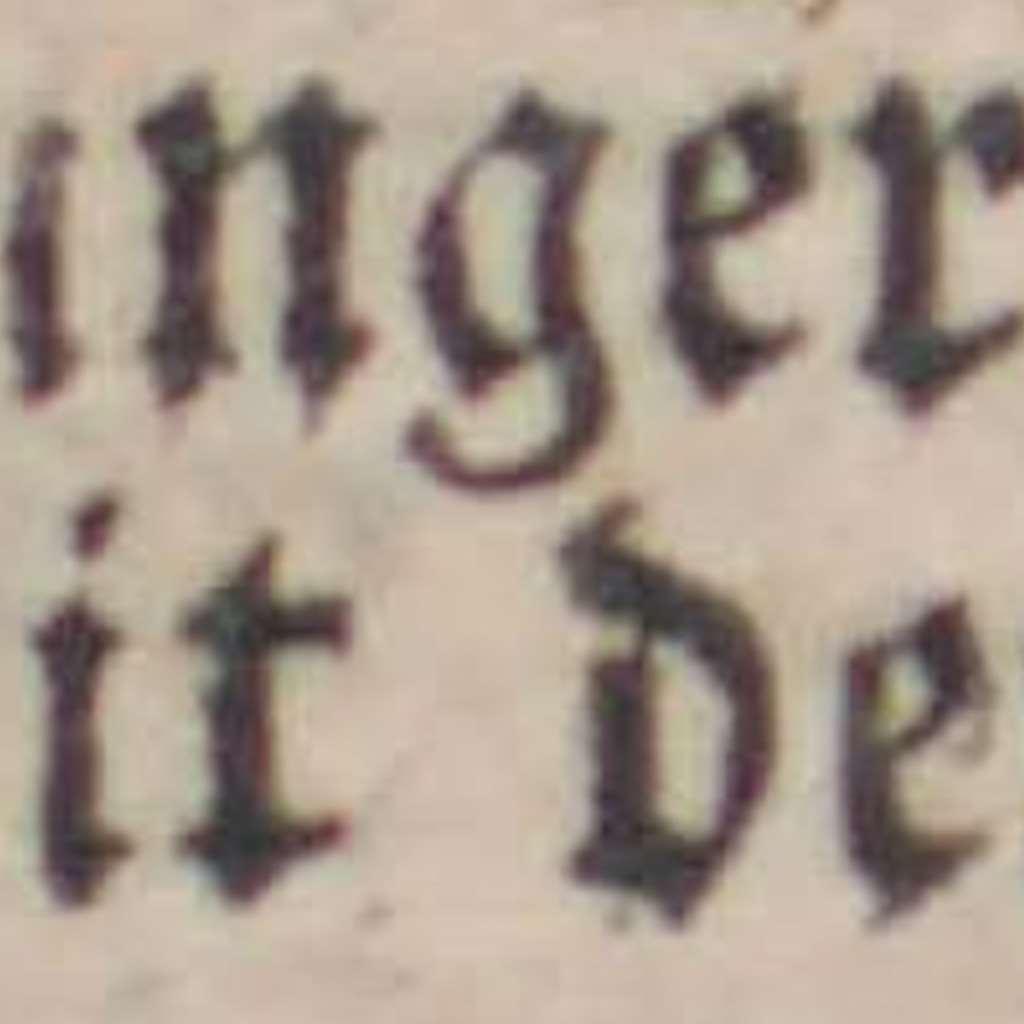 inger
it de